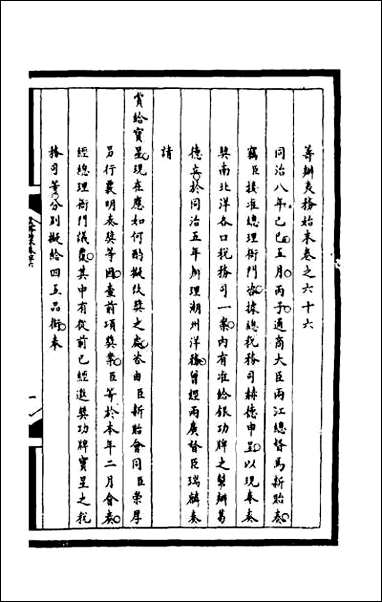 籌辦夷務始末卷之六十六
同治八年己巳五月丙子通商大臣兩江總督馬新貽奏
竊臣接准總理衙門咨據總稅務司赫德申呈以現奉奏
獎南北洋各口稅務司一案內有准給銀功牌之幫辦葛
德立於同治五年辦理潮州洋務曾經兩廣督臣瑞麟奏
請
賞給寶星現在應如何酌擬從獎之處咨由臣新貽會同臣崇厚
另行覈明奏獎等因查前項獎案臣等於本年二月會奏
經總理衙門議覆其中有從前已經邀獎功牌寶星之稅
務司等分別擬給四五品銜奉